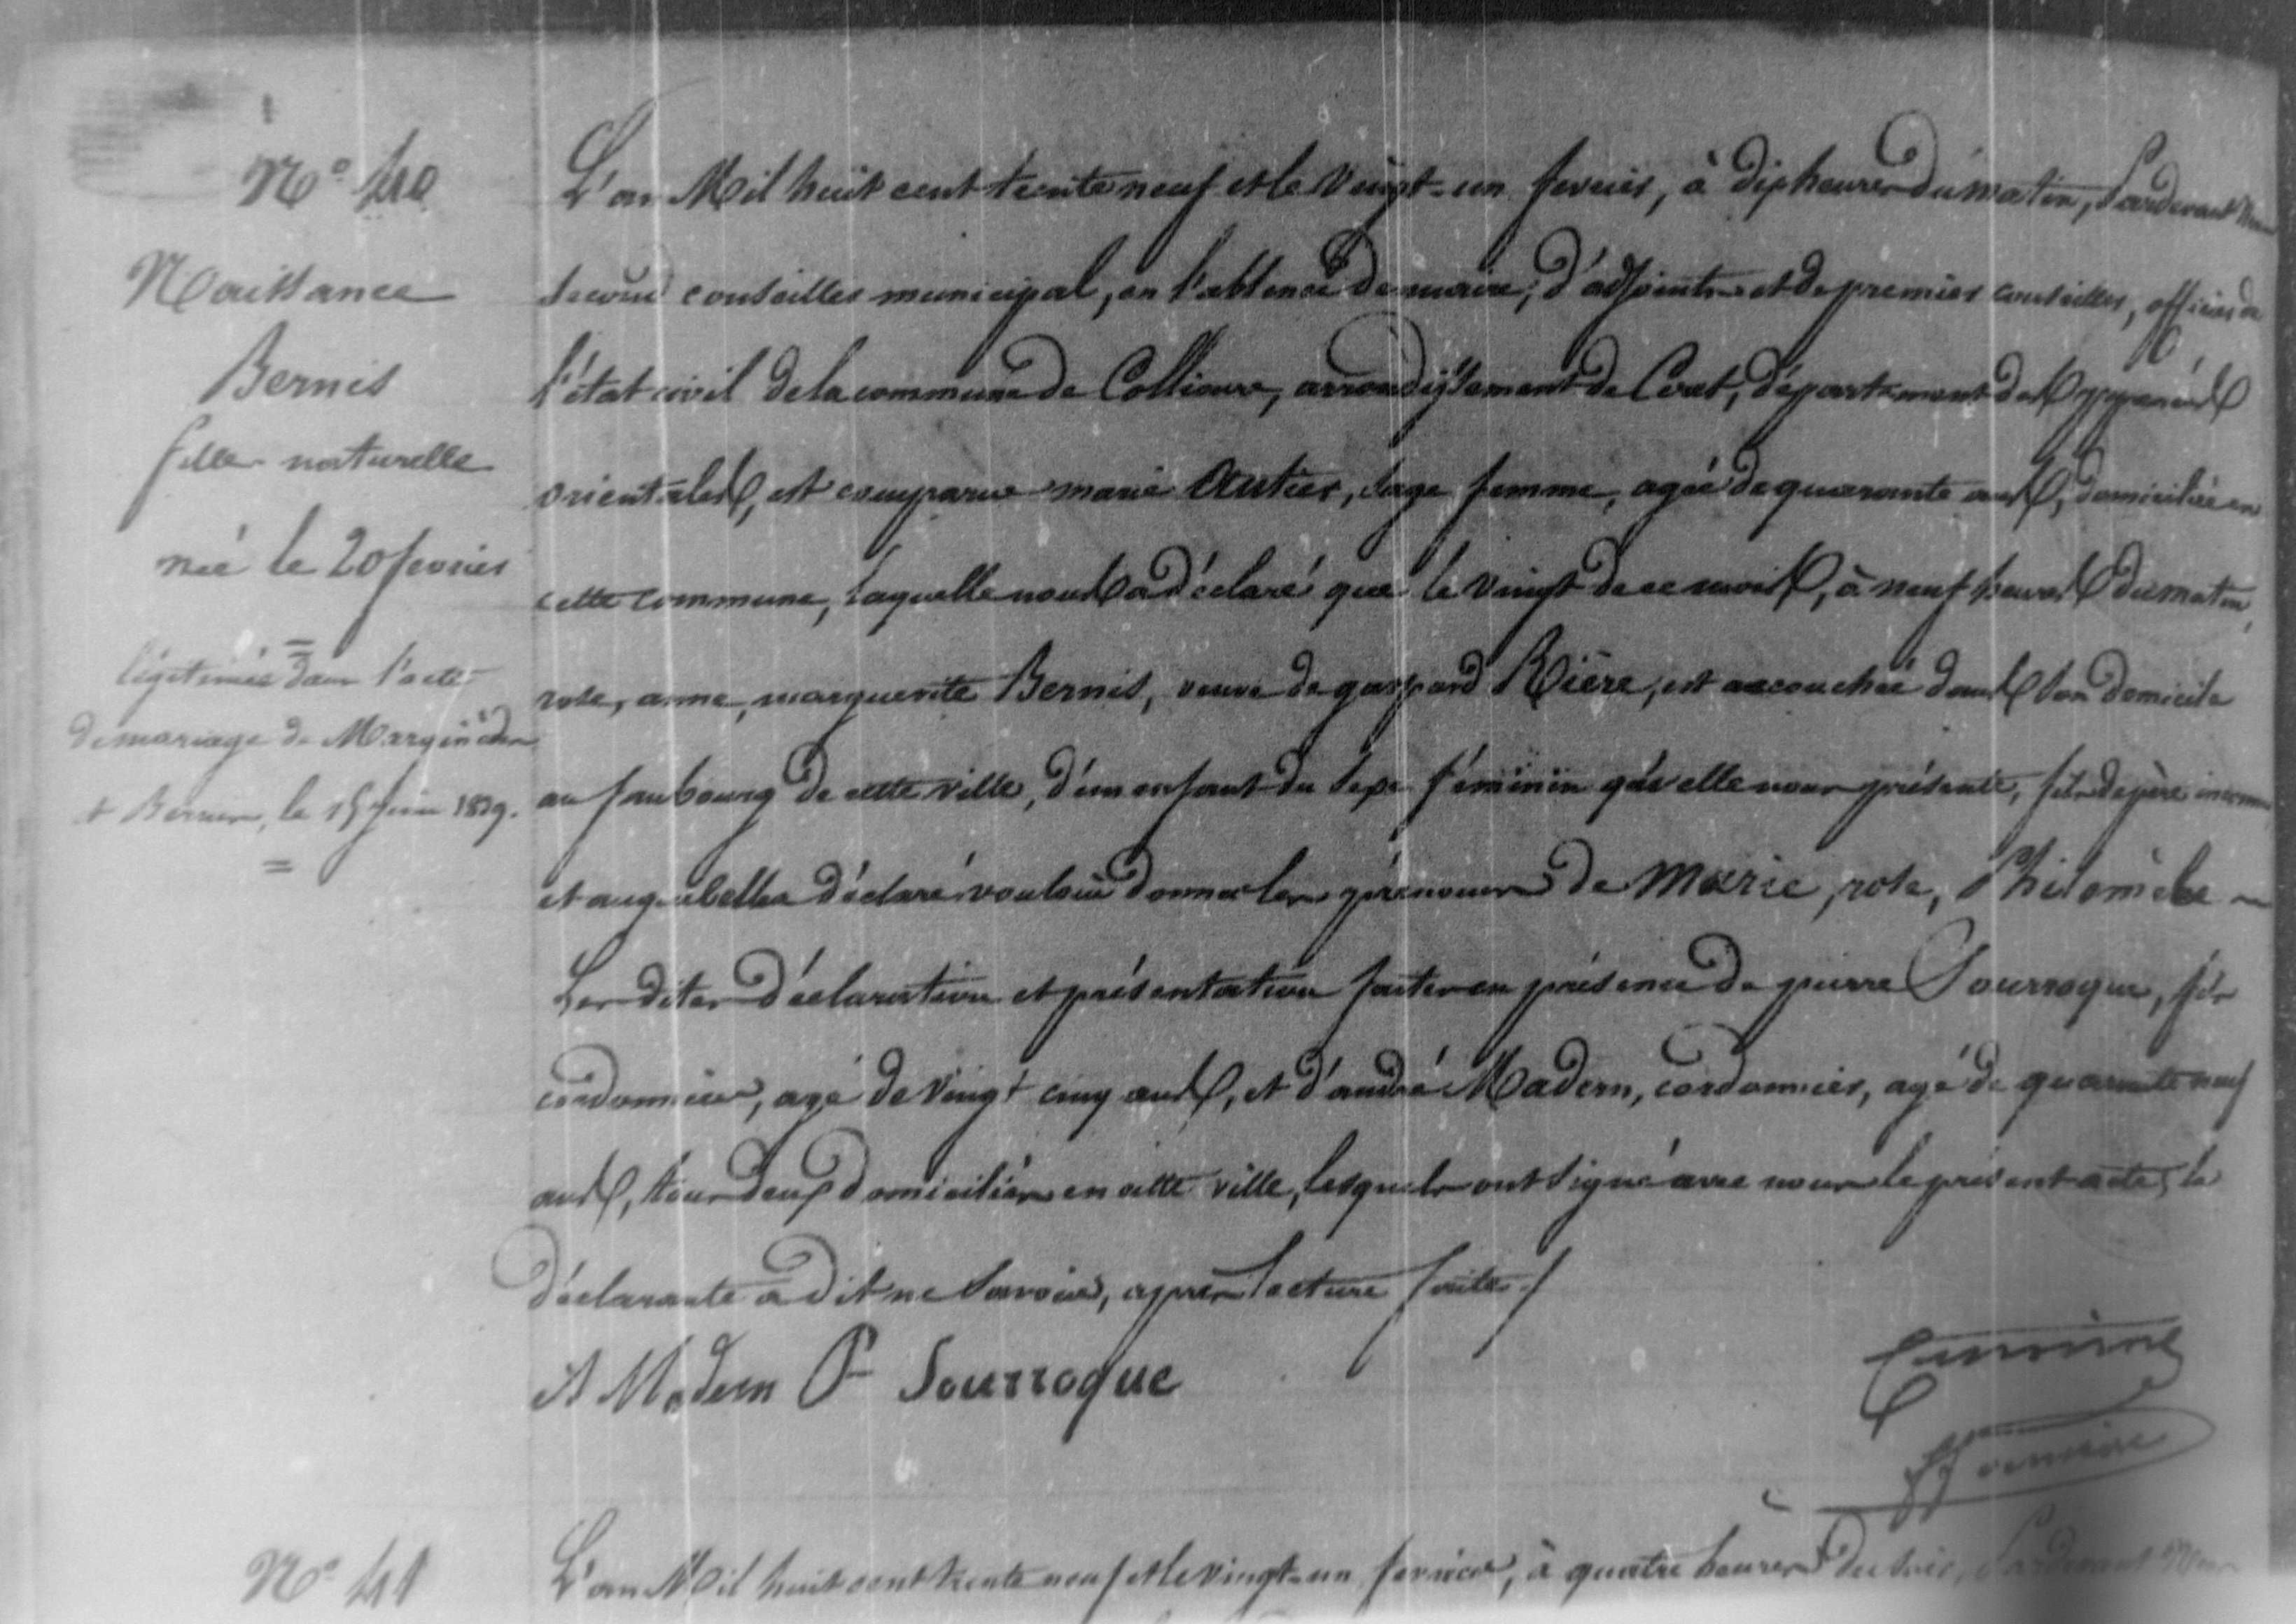 N.o 40
Naissance
Bernis
fille naturelle
née le 20 fevrier
=
légitimée dans l'acte
de mariage de
et Bernis, le 15 juin 1839.
=
L'an Mil huit cent trente neuf et le vingt-un fevrier, à dix heures du matin, Pardevant Nous
second conseiller municipal, en l'absence de maire, d'adjoints et de premier conseiller, officier de
l'état civil de la commune de Collioure, arrondissement de Ceret, département des pyrenées
orientales, est comparue marie Autier, sage femme, agée de quarante ans, domiciliée en
cette commune, laquelle nous a déclaré que le vingt de ce mois, à neuf heures du matin,
rose, anne, marguerite Bernis, veuve de gaspard Rière, est accouchée dans son domicile
au faubourg de cette ville, d'un enfant du sexe féminin qu'elle nous présente, fils de père inconnu
et auquel elle a déclaré vouloir donner les prénoms de Marie, rose, Philomène
Les dites déclaration et présentation faites en présence de pierre Sourroque, fils
cordonnier, agé de vingt cinq ans, et d'andré Madern, cordonnier, agé de quarante neuf
ans, tous deux domiciliés en cette ville, lesquels ont signé avec nous le présent acte, la
déclarante a dit ne savoir, après lecture faite./
A Madern P.re Sourroque
N.o 41
L'an Mil huit cent trente neuf et le vingt-un fevrier, à quatre heures du soir, Pardevant Nous